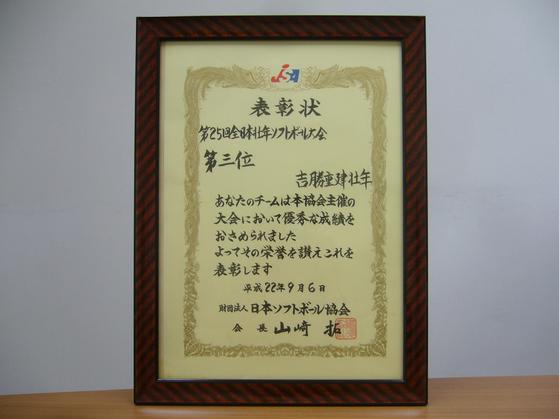 JSA
表彰状
第25回全日本壮年ソフトボール大会
第三位
吉勝重建壮年
あなたのチームは本協会主催の
大会において優秀な成績を
おさめられました
よってその栄誉を讃えこれを
表彰します
平成22年9月6日
財団法人 日本ソフトボール協会
会長 山崎 拓